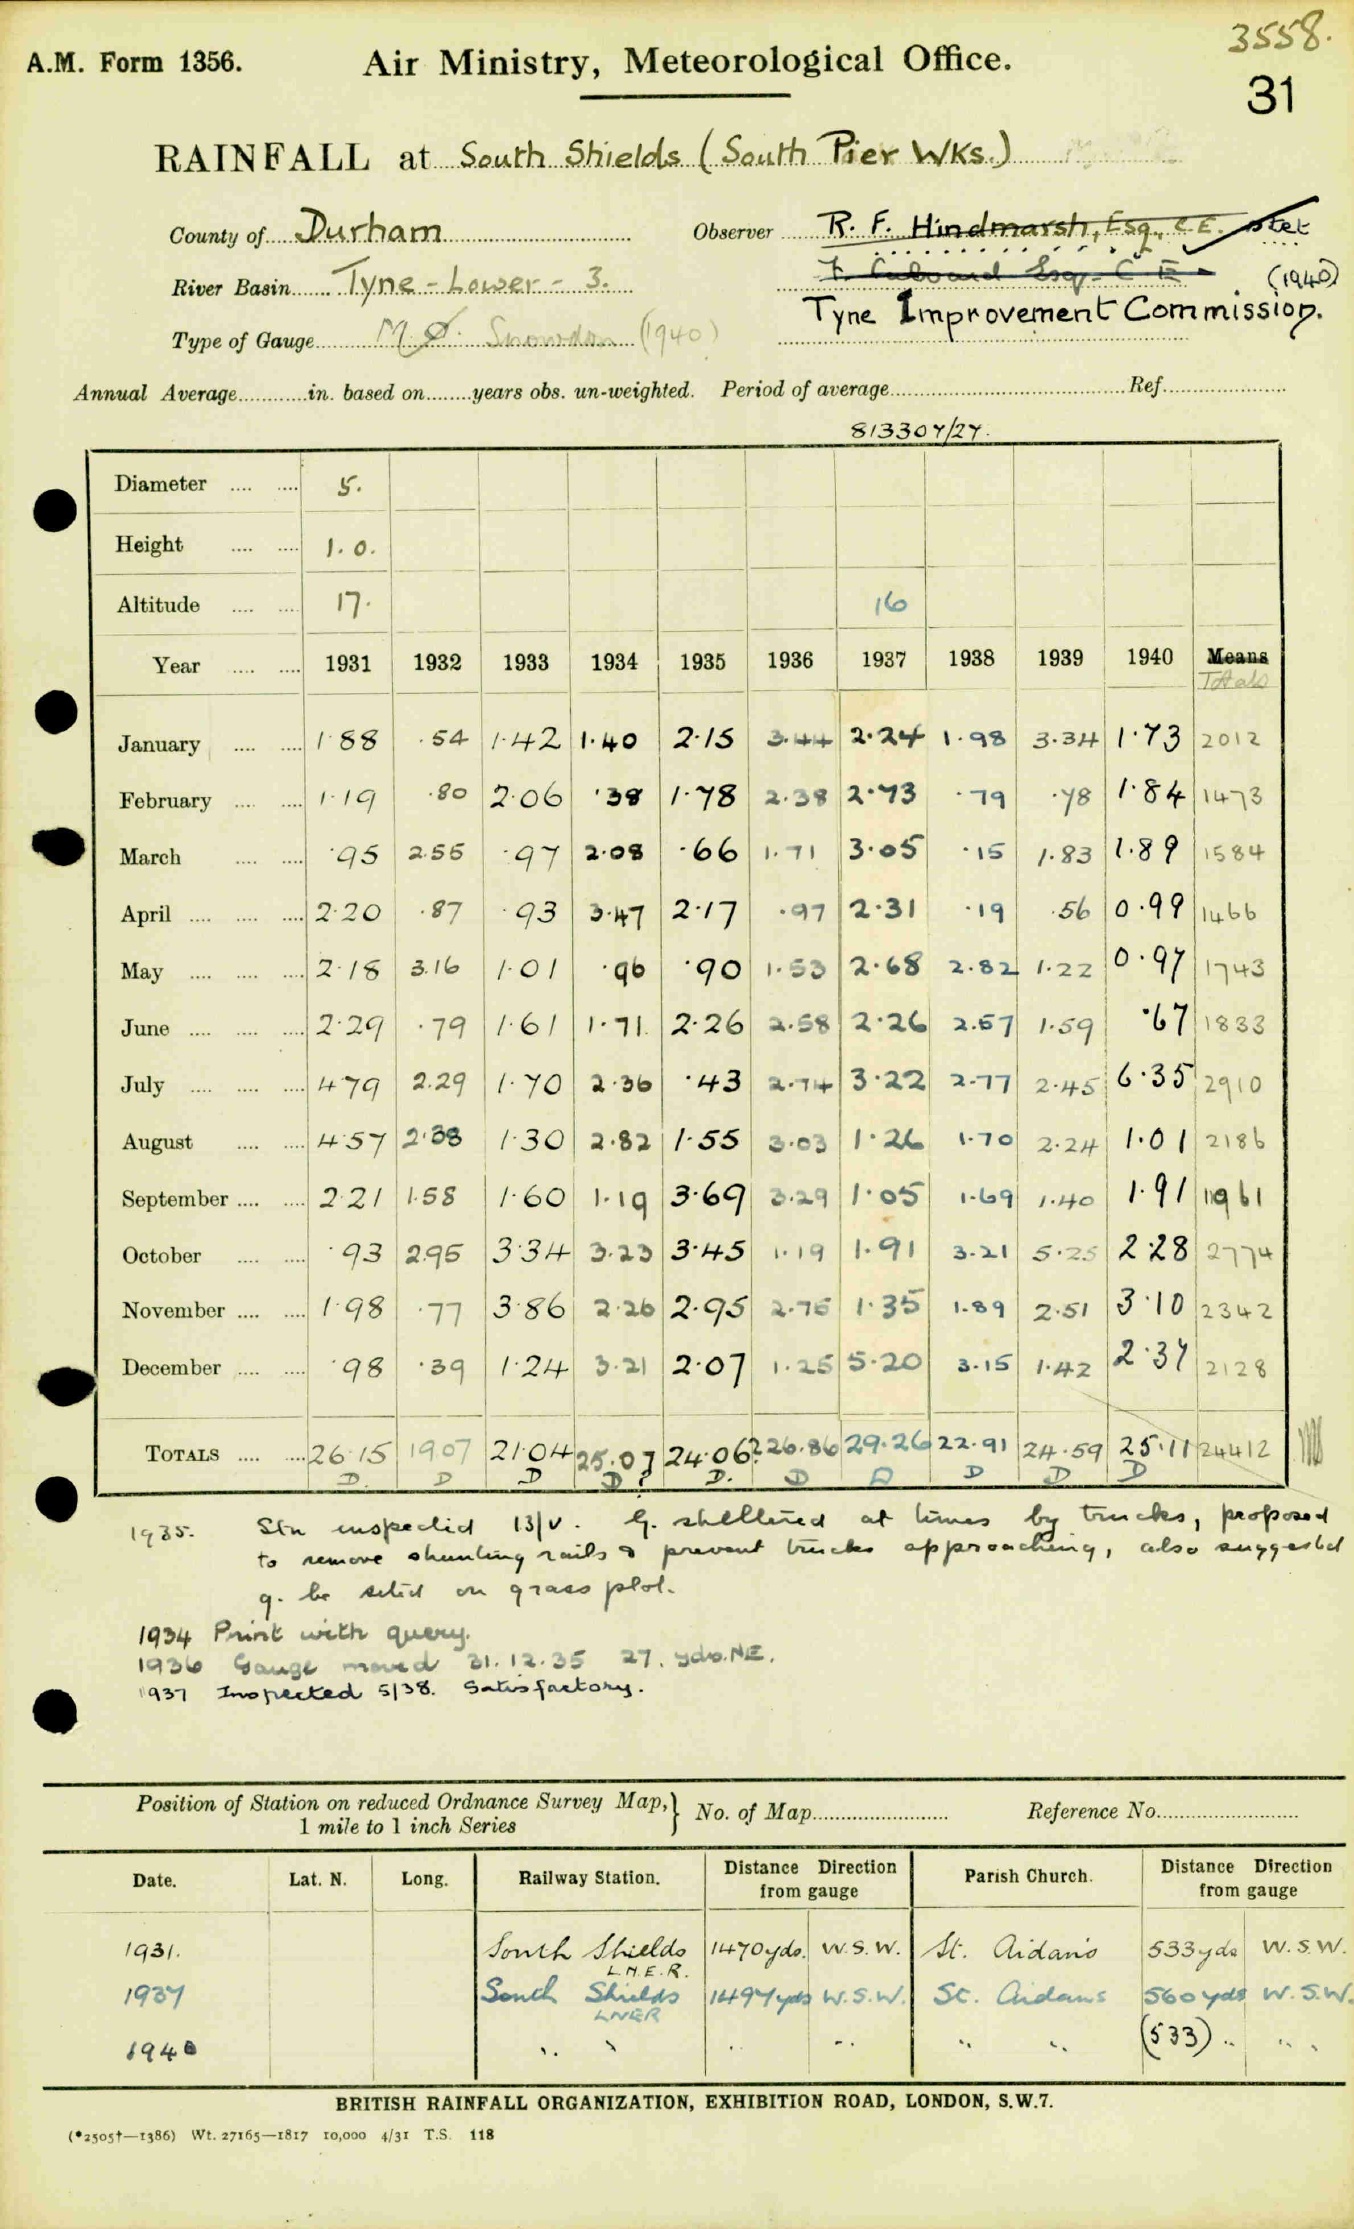 3558.
A.M. Form 1356. Air Ministry, Meteorological Office.
31
RAINFALL at South Shields (South Pier Wks.)
County of Durham Observer R. F. Hindmarsh, Esq., C.E. stet
River Basin Tyne - Lower - 3. Esq. C.E. (1940)
Tyne Improvement Commission.
Type of Gauge M.O. Snowdon (1940)
Annual Average............in. based on........years obs. un-weighted. Period of average........................Ref....................
813307/27.
Diameter .... .... 5.
Height .... .... 1. 0.
Altitude .... .... 17. 16
Year .... .... 1931 1932 1933 1934 1935 1936 1937 1938 1939 1940 Means
Totals
January .... .... 1·88 ·54 1·42 1·40 2·15 3·44 2·24 1·98 3·34 1·73 2012
February .... .... 1·19 ·80 2·06 ·38 1·78 2·38 2·73 ·79 ·78 1·84 1473
March .... .... ·95 2.55 ·97 2·08 ·66 1·71 3·05 ·15 1.83 1·89 1584
April .... .... .... 2·20 ·87 ·93 3·47 2·17 ·97 2·31 ·19 .56 0·99 1466
May .... .... .... 2·18 3.16 1·01 ·96 ·90 1·53 2·68 2.82 1·22 0·97 1743
June .... .... .... 2·29 ·79 1·61 1·71 2·26 2·58 2·26 2.57 1·59 ·67 1833
July .... .... .... 4·79 2.29 1·70 2·36 ·43 2·74 3·22 2·77 2·45 6·35 2910
August .... .... 4·57 2·38 1·30 2·82 1·55 3·03 1·26 1·70 2·24 1·01 2186
September .... .... 2·21 1·58 1·60 1·19 3·69 3·29 1·05 1·69 1·40 1·91 1961
October .... .... ·93 2.95 3·34 3·23 3·45 1·19 1·91 3·21 5·25 2·28 2774
November .... .... 1·98 ·77 3·86 2·26 2·95 2·75 1·35 1·89 2·51 3·10 2342
December .... .... ·98 ·39 1·24 3·21 2·07 1·25 5·20 3·15 1·42 2·37 2128
TOTALS .... .... 26·15 19·07 21·04 25·07 24·06? 26·86 29·26 22·91 24·59 25·11 24412
D. D D D ? D. D D D D D
1935. Stn inspected 13/V. G. sheltered at times by trucks, proposed
to remove shunting rails & prevent trucks approaching, also suggested
g. be sited on grass plot.
1934 Print with query.
1936 Gauge moved 31.12.35 27. yds. NE.
1937 Inspected 5/38. Satisfactory.
Position of Station on reduced Ordnance Survey Map, } No. of Map........................ Reference No.........................
1 mile to 1 inch Series
Date. Lat. N. Long. Railway Station. Distance Direction from gauge Parish Church. Distance Direction from gauge
1931. South Shields L.N.E.R. 1470 yds. W.S.W. St. Aidan's 533 yds W.S.W.
1937 South Shields LNER 1497 yds W.S.W. St. Aidans 560 yds W.S.W.
1940 " " " " " " (533) " " "
BRITISH RAINFALL ORGANIZATION, EXHIBITION ROAD, LONDON, S.W.7.
(*2505†—1386) Wt. 27165—1817 10,000 4/31 T.S. 118